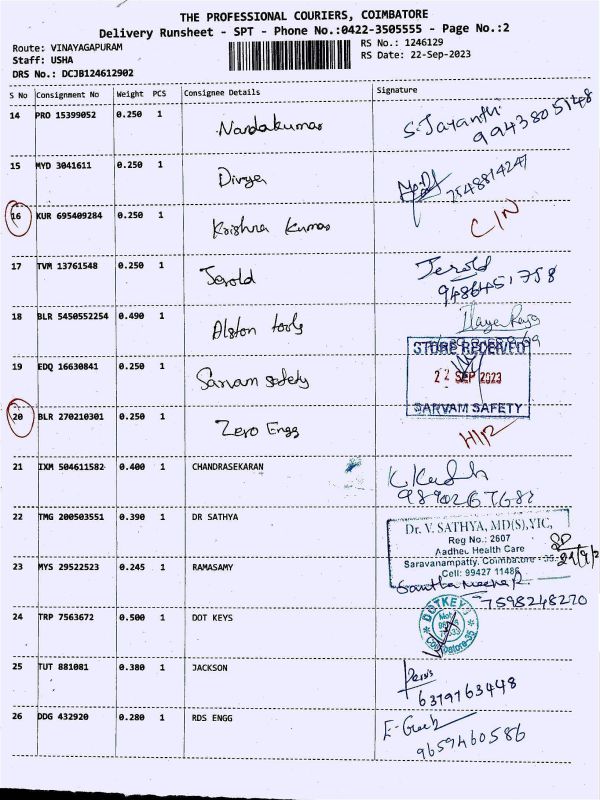 THE PROFESSIONAL COURIERS, COIMBATORE
Delivery Runsheet - SPT - Phone No.:0422-3505555 - Page No.:2
Route: VINAYAGAPURAM RS No.: 1246129
Staff: USHA RS Date: 22-Sep-2023
DRS No.: DCJB124612902
S No Consignment No Weight PCS Consignee Details Signature
14 PRO 15399052 0.250 1 Nandakumar S. Jayanthi
9943805148
15 MYD 3041611 0.250 1 Divya
7548814247
16 KUR 695409284 0.250 1 Krishna Kumar C/N
17 TVM 13761548 0.250 1 Jerold Jerold
9486451758
18 BLR 5450552254 0.490 1 Alston tools
19 EDQ 16630841 0.250 1 Sarvam safety STORE RECEIVED
22 SEP 2023
SARVAM SAFETY
20 BLR 270210301 0.250 1 Zero Engg
21 IXM 504611582 0.400 1 CHANDRASEKARAN
22 TMG 200503551 0.390 1 DR SATHYA Dr. V. SATHYA, MD(S),YIC,
Reg No.: 2607
Aadhei Health Care
Saravanampatty, Coimbatore - 35.
Cell: 99427 11486
23 MYS 29522523 0.245 1 RAMASAMY
7598248270
24 TRP 7563672 0.500 1 DOT KEYS DOTKEYS
Coimbatore-35
25 TUT 881081 0.380 1 JACKSON
6379763448
26 DDG 432920 0.280 1 RDS ENGG
9659460586